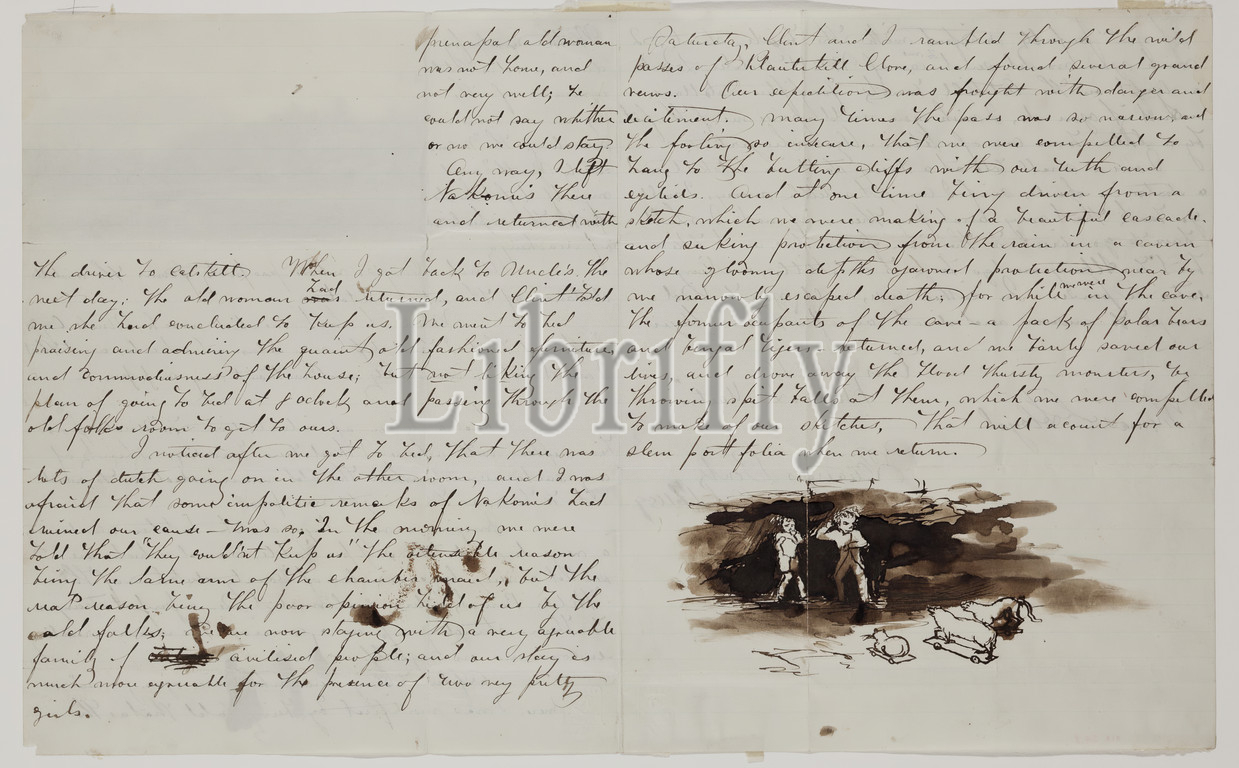 principal old woman
was not home, and
not very well; he
could not say whither
or no we could stay.
Any way, I left
Nakomis there
and returned with
the driver to Catskill. When I got back to Uncle's the
next day; the old woman had returned, and Clint told
me she had concluded to keep us. We went to bed
praising and admiring the quaint old fashioned furniture,
and commodiousness of the house; but not liking the
plan of going to bed at 8 oclock and passing through the
old folks room to get to ours.
I noticed after we got to bed, that there was
lots of dutch going on in the other room, and I was
afraid that some impolitic remarks of Nakomis had
ruined our cause – twas so. In the morning we were
told that "they couldn't keep us" the ostensible reason
being the lame arm of the chamber maid, but the
real reason being the poor opinion held of us by the
old folks; we are now staying with a very agreeable
family of civilised people; and our stay is
much more agreeable for the presence of two very pretty
girls.
Saturday, Clint and I rambled through the wild
passes of Plauterkill Clove, and found several grand
views. Our expedition was frought with danger and
excitement. many times the pass was so narrow, and
the footing so insecure, that we were compelled to
hang to the butting cliffs with our teeth and
eyelids. And at one time being driven from a
sketch, which we were making of a beautiful cascade.
and seeking protection from the rain in a cavern
whose gloomy depths proterction near by
we narrowly escaped death; for while we were in the cave,
the former occupants of the cave – a pack of polar bears
and bengal tigers – returned, and we barely saved our
lives, and drove away the blood thirsty monsters, by
throwing spit balls at them, which we were compelled
to make of our sketches, That will acount for a
slem port folia when we return.
Librifly